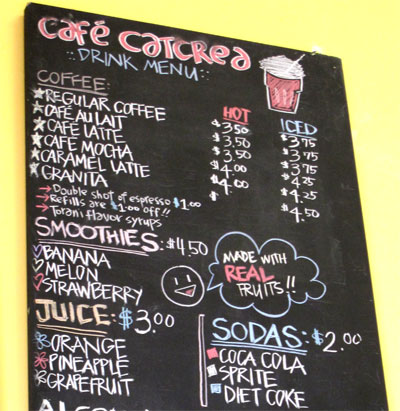 Café CatCrea
::DRINK MENU::
COFFEE: HOT ICED
REGULAR COFFEE $3.50 $3.75
CAFÉ AU LAIT $3.50 $3.75
CAFÉ LATTE $3.50 $3.75
CAFE MOCHA $4.00 $4.25
CARAMEL LATTE $4.00 $4.25
GRANITA $ $4.50
→ Double shot of espresso $1.00
→ Refills are $1.00 off!!
→ Torani flavor syrups
SMOOTHIES: $4.50
BANANA
MELON
STRAWBERRY
MADE WITH
REAL
FRUITS!!
JUICE: $3.00
ORANGE
PINEAPPLE
GRAPEFRUIT
SODAS: $2.00
COCA COLA
SPRITE
DIET COKE